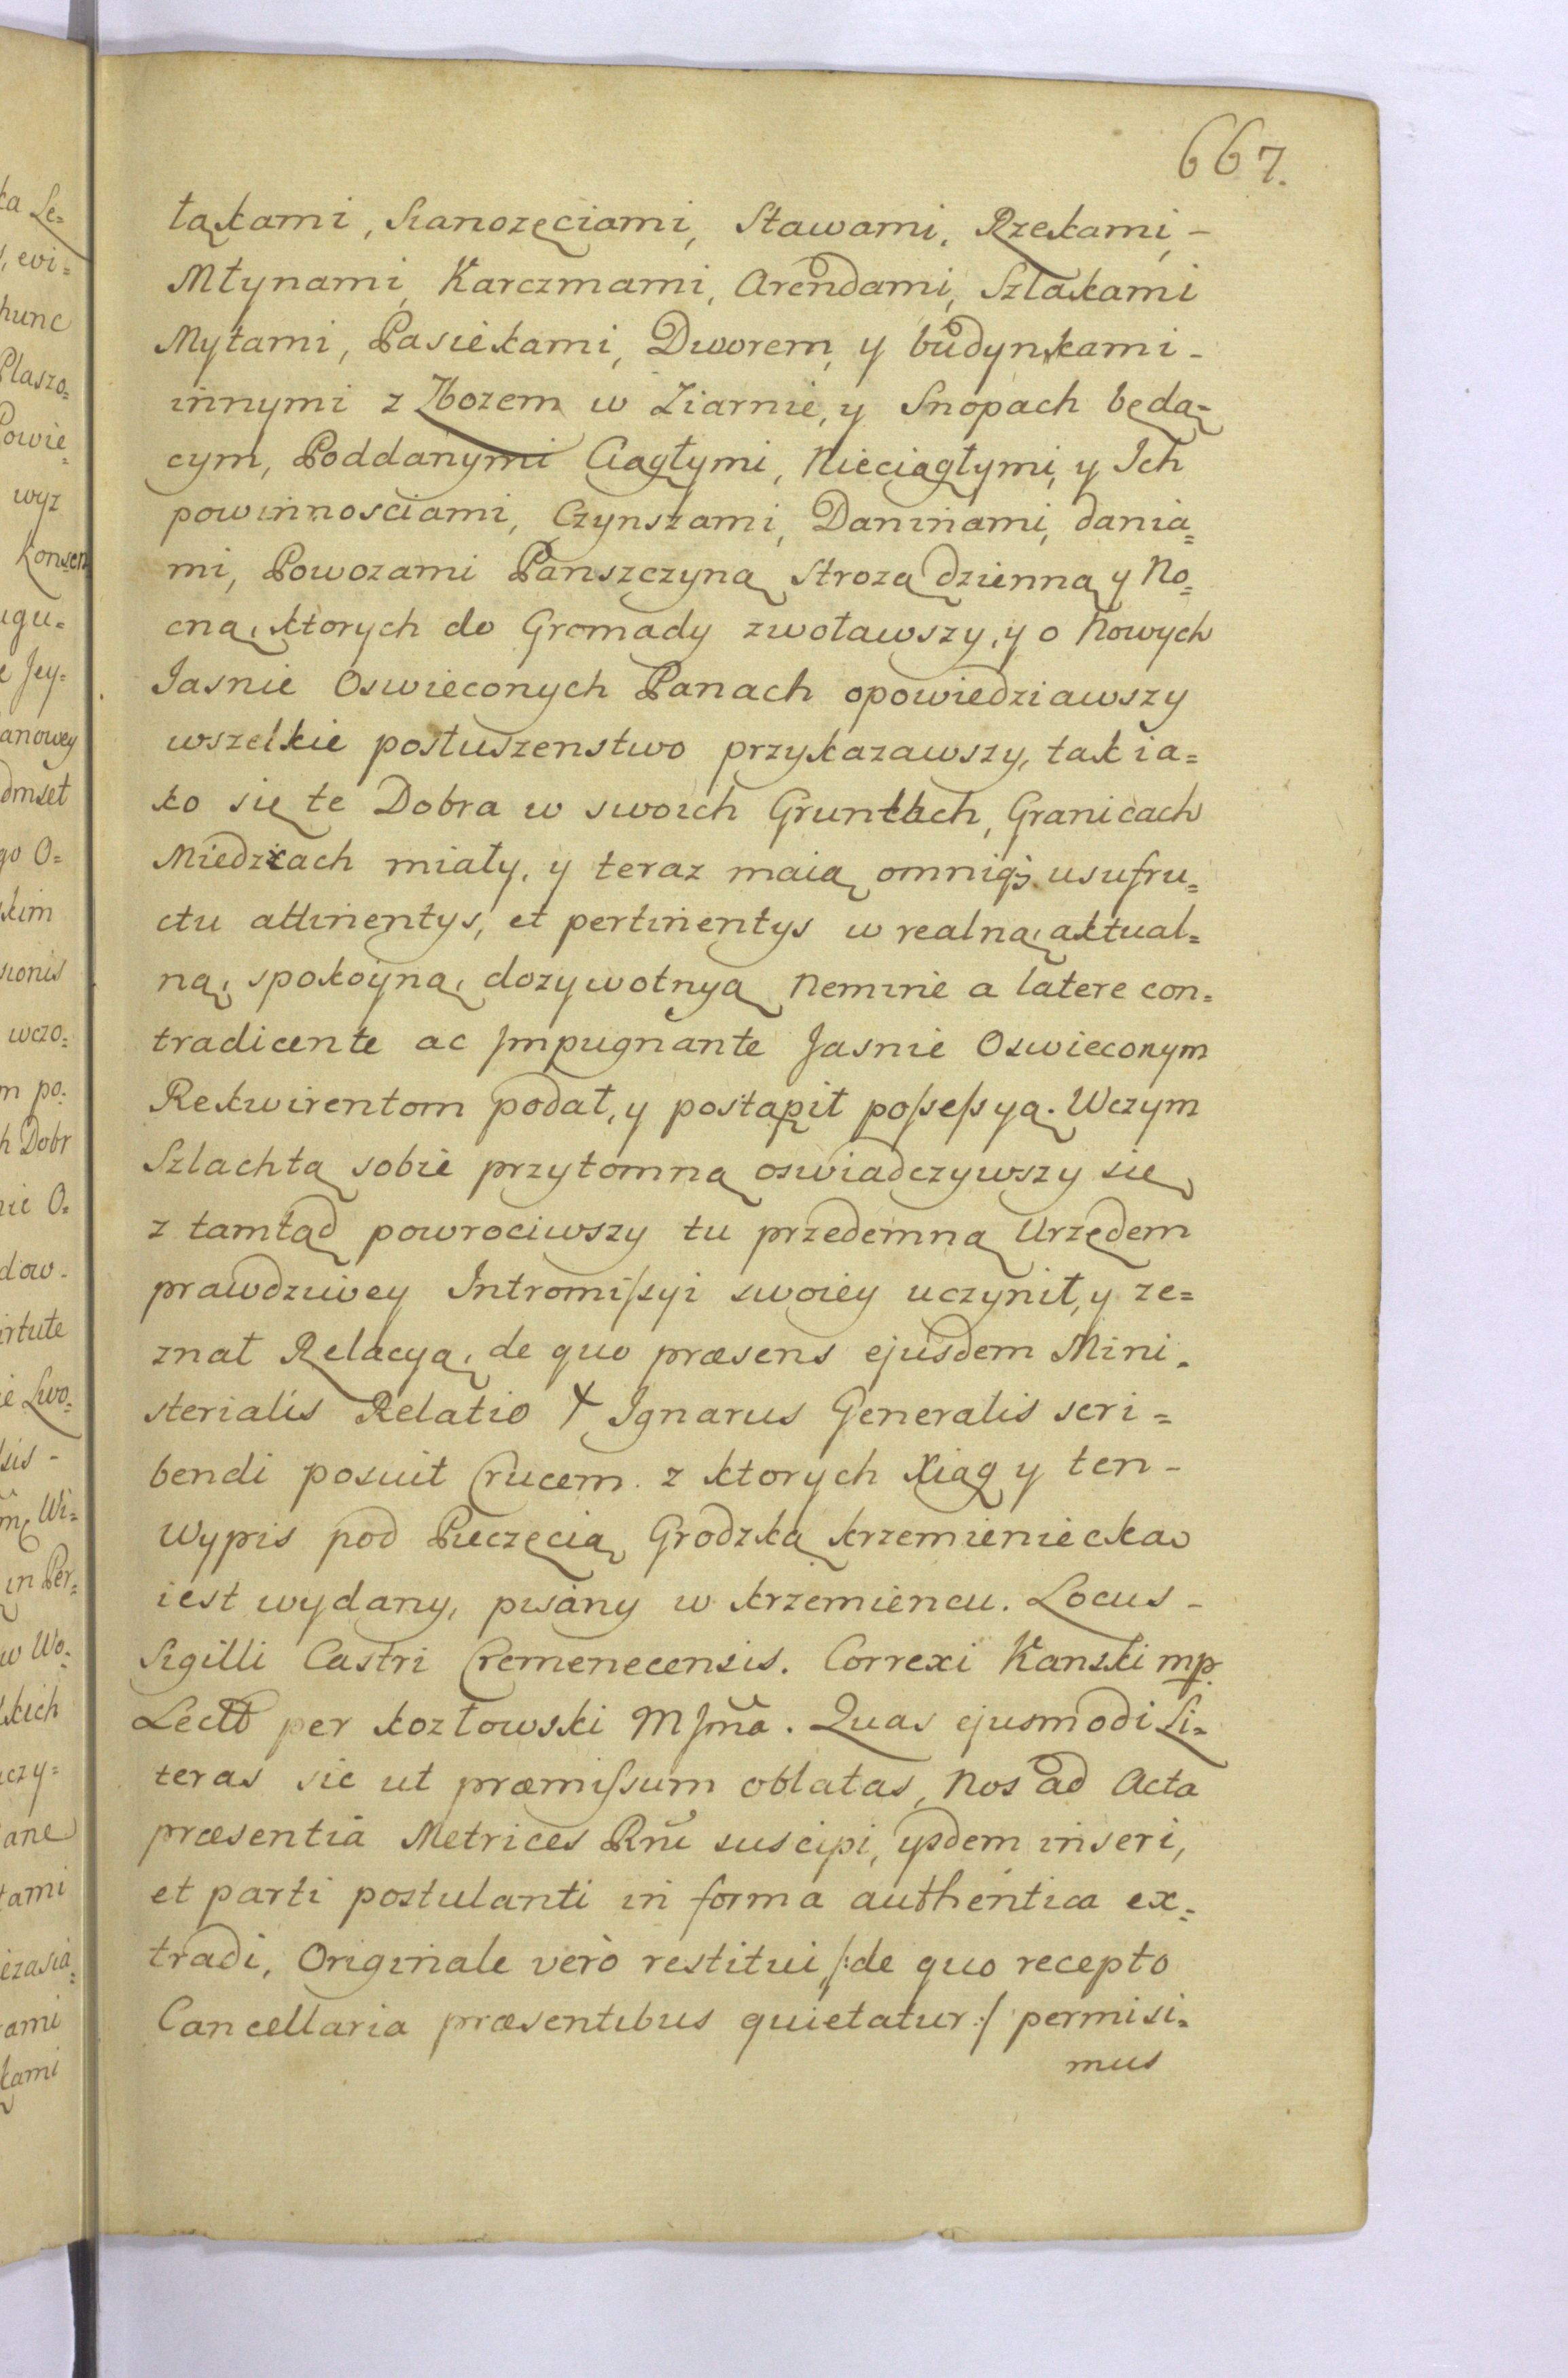 667.
łąkami, Sianozęciami, Stawami, Rzekami, -
Młynami, Karczmami, Arendami, Szlakami
Mytami, Pasiekami, Dworem, y budynkami -
innymi z Zbozem w Ziarnie, y Snopach będą=
cym, Poddanymi Ciągłymi, Nieciągłymi, y Ich
powinnosciami, Czynszami, Daninami, dania=
mi, Powozami Panszczyną Strozą dzienną y No=
cną, ktorych do Gromady zwoławszy, y o Nowych
Jasnie Oswieconych Panach opowiedziawszy
wszelkie posłuszenstwo przykazawszy, tak ia=
ko się te Dobra w swoich Gruntach, Granicach
Miedzach miały, y teraz maią omniqȝ usufru=
ctu attinentys, et pertinentys w realną, aktual=
ną, spokoyną, dozywotnyą Nemine a latere con=
tradicente ac Impugnante Jasnie Oswieconym
Rekwirentom podał, y postąpił possessyą. Wczym
Szlachtą sobie przytomną oswiadczywszy się
z tamtąd powrociwszy tu przedemną Urzędem
prawdziwey Intromissyi swoiey uczynił, y ze=
znał Relacyą, de quo præsens ejusdem Mini=
sterialis Relatio + Ignarus Generalis scri=
bendi posuit Crucem. z ktorych Xiąg y ten -
Wypis pod Pieczęcią Grodzką krzemieniecką
iest wydany, pisany w krzemiencu. Locus -
Sigilli Castri Cremenecensis. Correxi Kanski mp.
Lectt per kozłowski MJma. Quas ejusmodi Li=
teras sic ut præmissum oblatas, Nos ad Acta
præsentia Metrices Rni suscipi, ysdem inseri,
et parti postulanti in forma authentica ex=
tradi, Originale verò restitui, /:de quo recepto
Cancellaria præsentibus quietatur:/ permisi=
mus